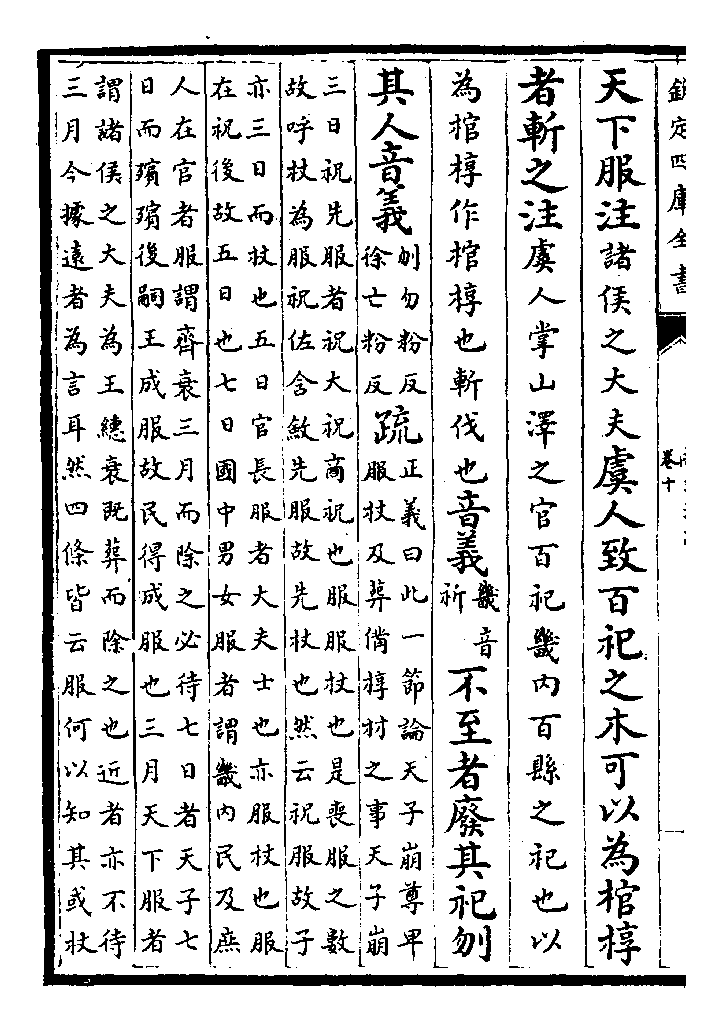 欽定四庫全書
卷十
天下服注諸侯之大夫虞人致百祀之木可以為棺椁
者斬之注虞人掌山澤之官百祀畿内百縣之祀也以
為棺椁作棺椁也斬伐也音義畿音
祈
不至者廢其祀刎
其人音義刎勿粉反
徐亡粉反
疏正義曰此一節論天子崩尊卑
服杖及葬偹椁材之事天子崩
三日祝先服者祝大祝商祝也服服杖也是喪服之數
故呼杖為服祝佐含斂先服故先杖也然云祝服故子
亦三日而杖也五日官長服者大夫士也亦服杖也服
在祝後故五日也七日國中男女服者謂畿内民及庶
人在官者服謂齊衰三月而除之必待七日者天子七
日而殯殯後嗣王成服故民得成服也三月天下服者
謂諸侯之大夫為王繐衰既葬而除之也近者亦不待
三月今據遠者為言耳然四條皆云服何以知其或杖